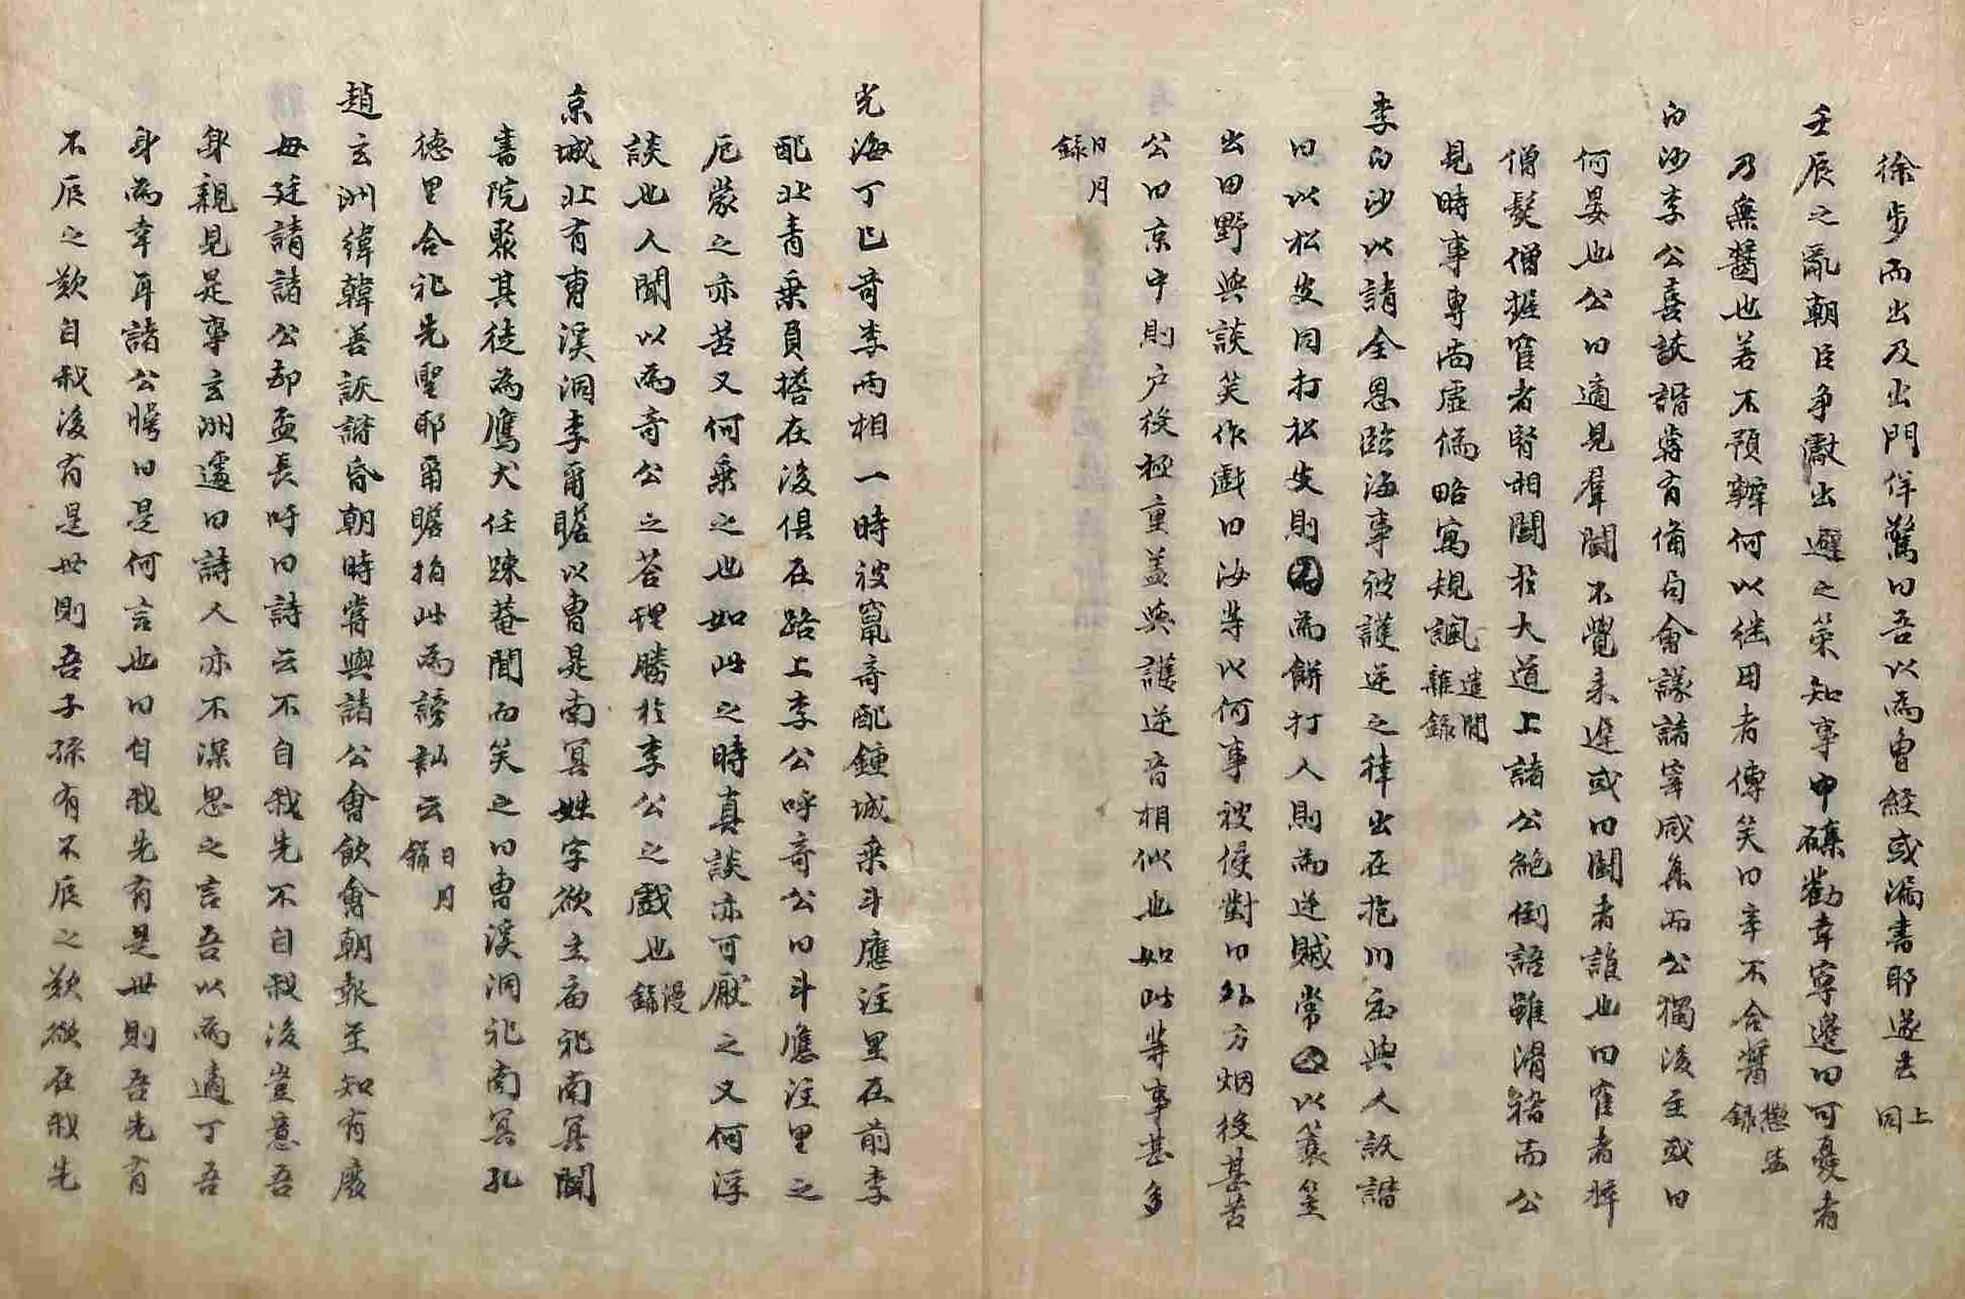 徐步而出及出門佯驚曰吾以爲曾經或漏書耶遂去上同
壬辰之亂朝臣爭獻出避之策知事申磼勸幸寧邊曰可憂者
乃無醬也若不預辦何以继因者傳笑曰辛不合醬
白沙李公喜談諧嘗有備局會議諸宰咸集而公獨後至或曰
何晏也公曰適見羣鬪不覺来遅或曰鬪者誰也曰宦者捽
僧髮僧握宦者腎相鬪於大道上諸公絶倒語雖滑稽而公
見時事專尚虛僞略寓規諷遣閒雜録
李白沙以請全恩臨海事被護逆之律出在抱川每與人詼諧
曰以松皮同打松皮則爲餠打人則爲逆賊常以簑笠
出田野與談笑作戱曰汝等以何事被侵對曰外方烟役甚苦
公曰京中則户役極重盖與護逆音相似也如此等事甚多
日月録
光海丁巳奇李兩相一時被竄奇配鍾城乘斗應注里在前李
配北青乗員擔在後俱在路上李公呼奇公曰斗應注里之
厄蒙之亦苦又何乗之也如此之時真談亦可厭之又何浮
談也人聞以爲奇公之答理勝於李公之戲也漫録
京城北有曺溪洞李爾瞻以曺是南冥姓字欲立廟祀南冥闢
書院聚其徒爲鷹犬任踈菴聞而笑之曰曺溪洞祀南冥孔
德里合祀先聖耶爾瞻指此爲謗訕云日月録
趙玄洲緯韓善詼諧昏朝時嘗與諸公會飲會朝報至知有廢
母廷請諸公却盃長吁曰詩云不自我先不自我後豈意吾
身親見是事玄洲遽曰詩人亦不深思之言吾以爲適丁吾
身爲幸耳諸公愕曰是何言也曰自我先有是世則吾先有
不辰之歎自我後有是世則吾子孫有不辰之歎欲在我先